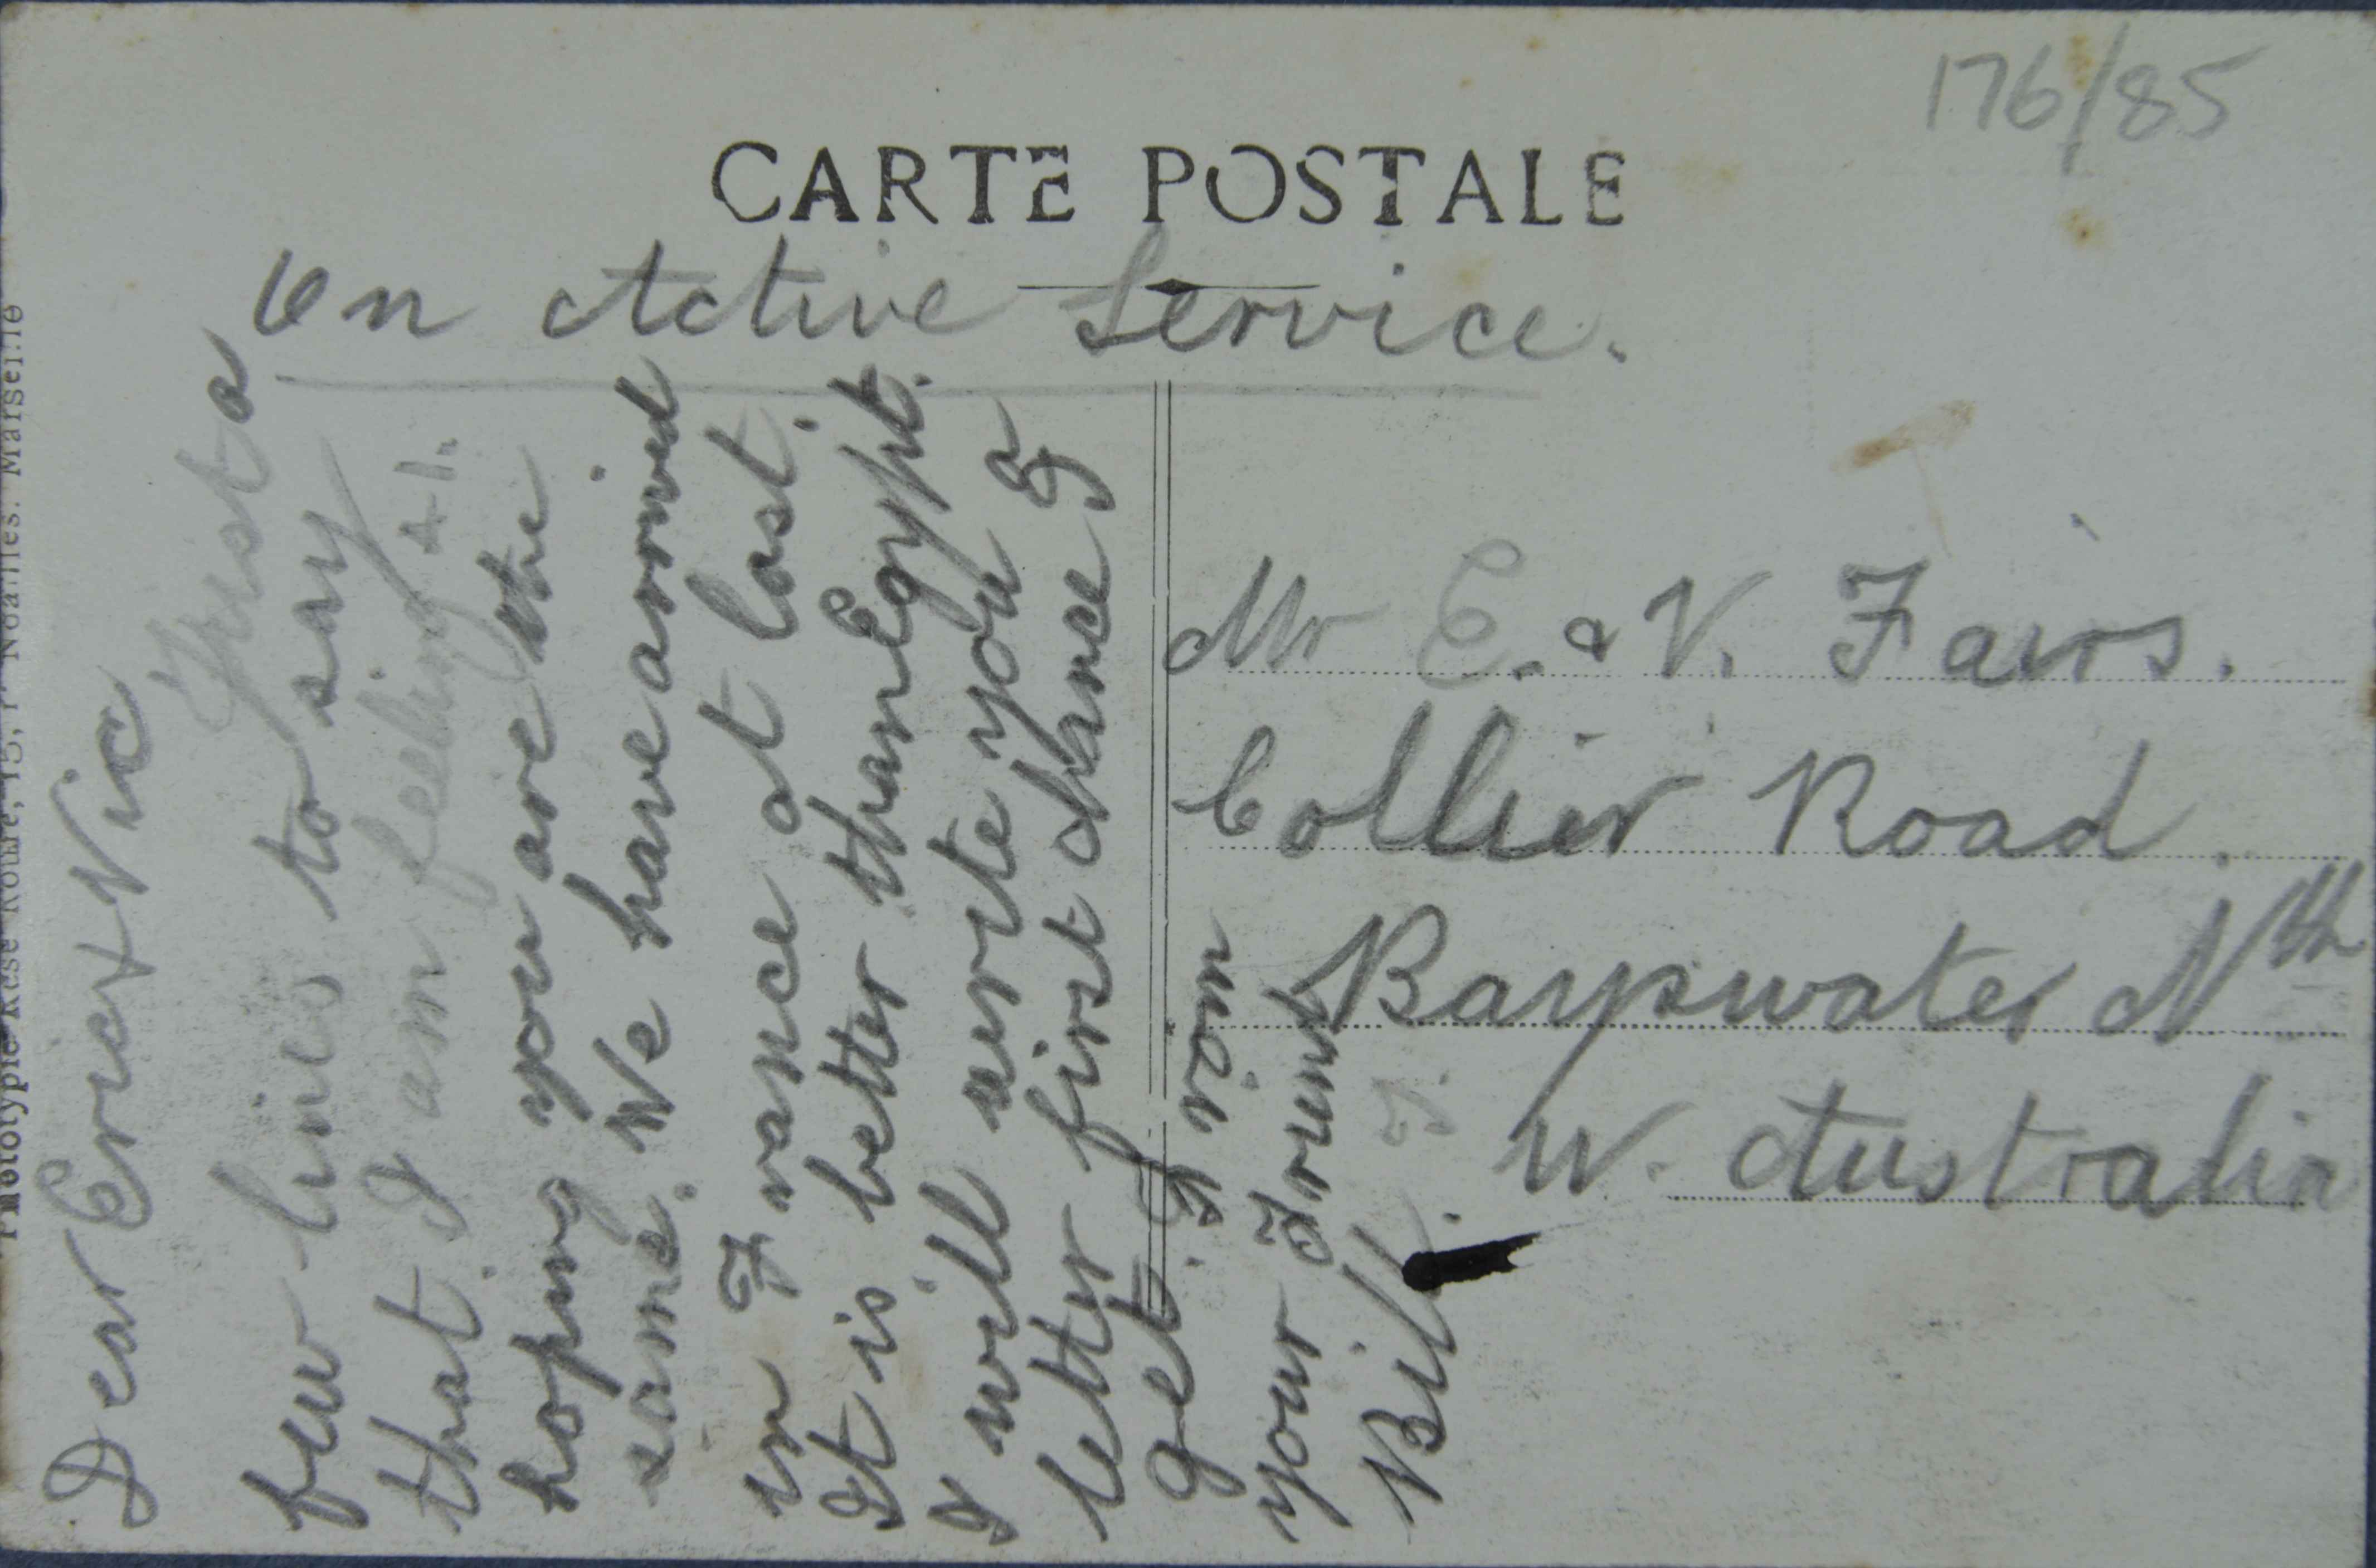 176/85
CARTE POSTALE
On Active Service.
Dear Eric & Vic
Just a
few lines to say
that I am feeling A1.
hoping you are the
same. We have arrived
in France at last.
It is better than Egypt.
I will write you a
letter first chance I
get. From
your Frend
Bill.
Mr E. & V. Fairs.
Collier Road.
Bayswater Nth
W. Australia
Marseille